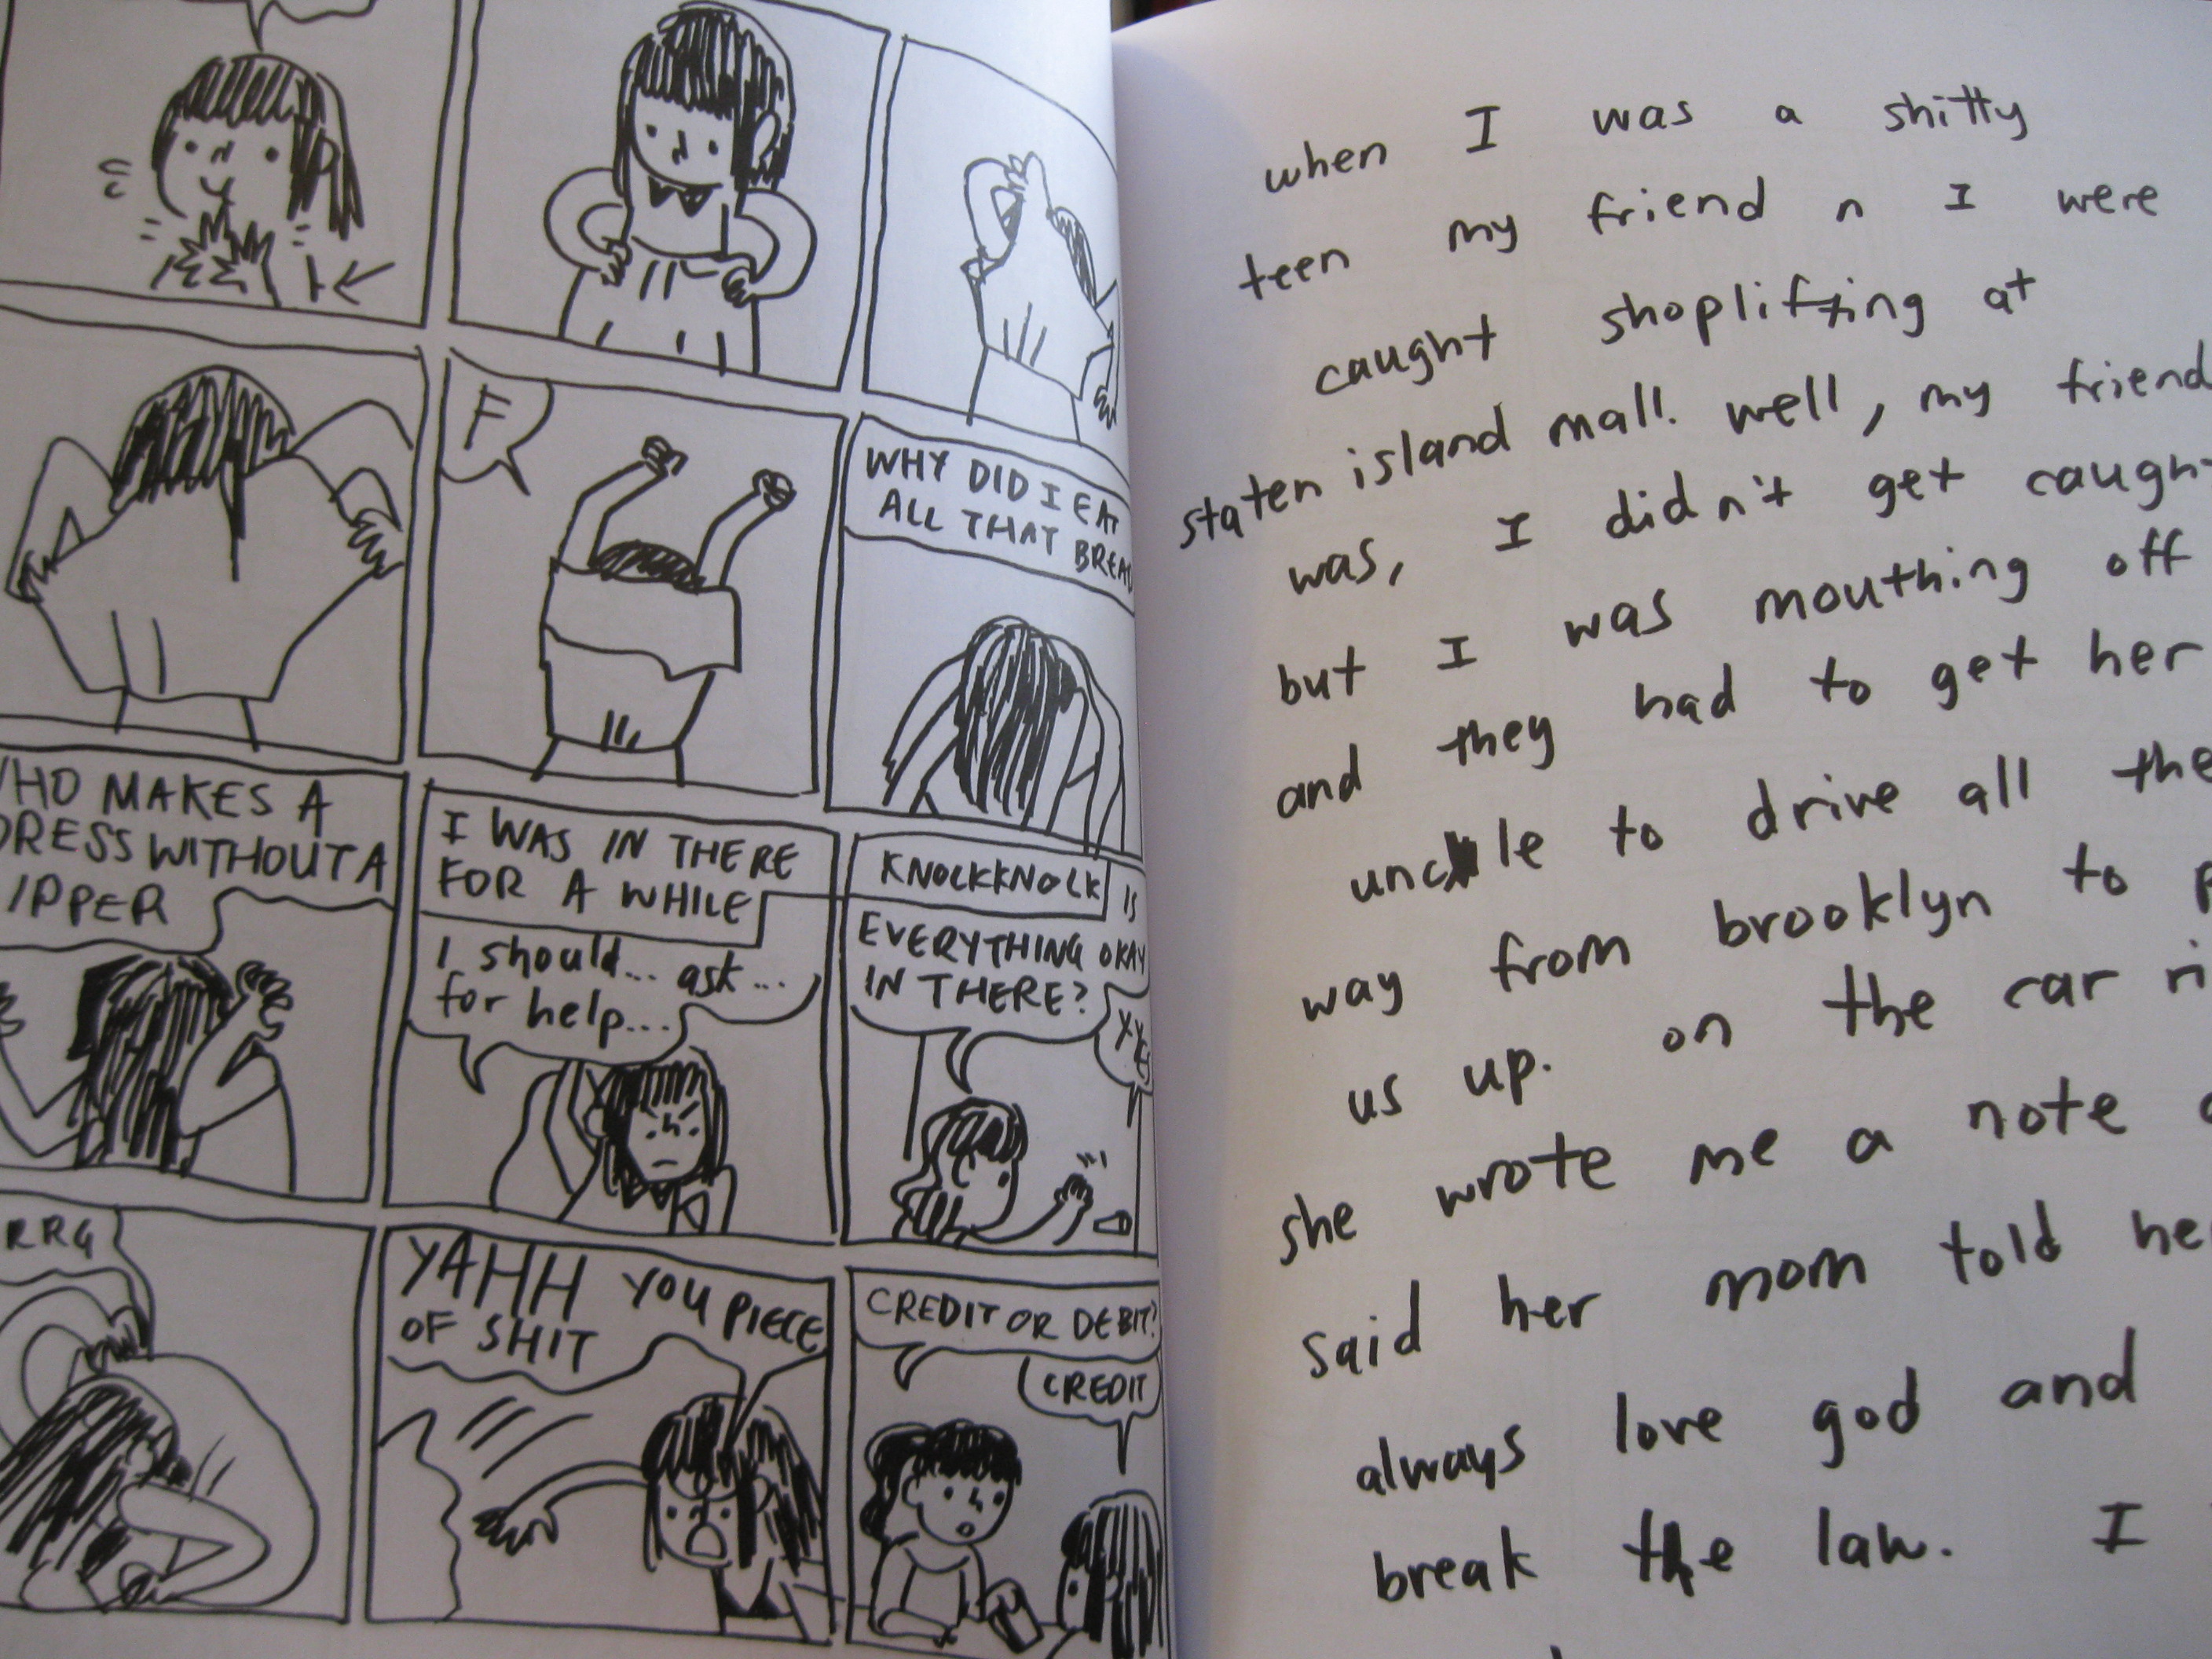 F
WHY DID I EAT
ALL THAT BREAD
WHO MAKES A
DRESS WITHOUT A
ZIPPER
I WAS IN THERE
FOR A WHILE
I should... ask...
for help...
KNOCKKNOCK
IS
EVERYTHING OKAY
IN THERE?
YYES
RRG
YAHH YOU PIECE
OF SHIT
CREDIT OR DEBIT?
CREDIT
when I was a shitty
teen my friend n I were
caught shoplifting at
staten island mall. well, my friend
was, I didn't get caught
but I was mouthing off
and they had to get her
uncle to drive all the
way from brooklyn to
us up. on the car
she wrote me a note
said her mom told her
always love god and
break the law. I